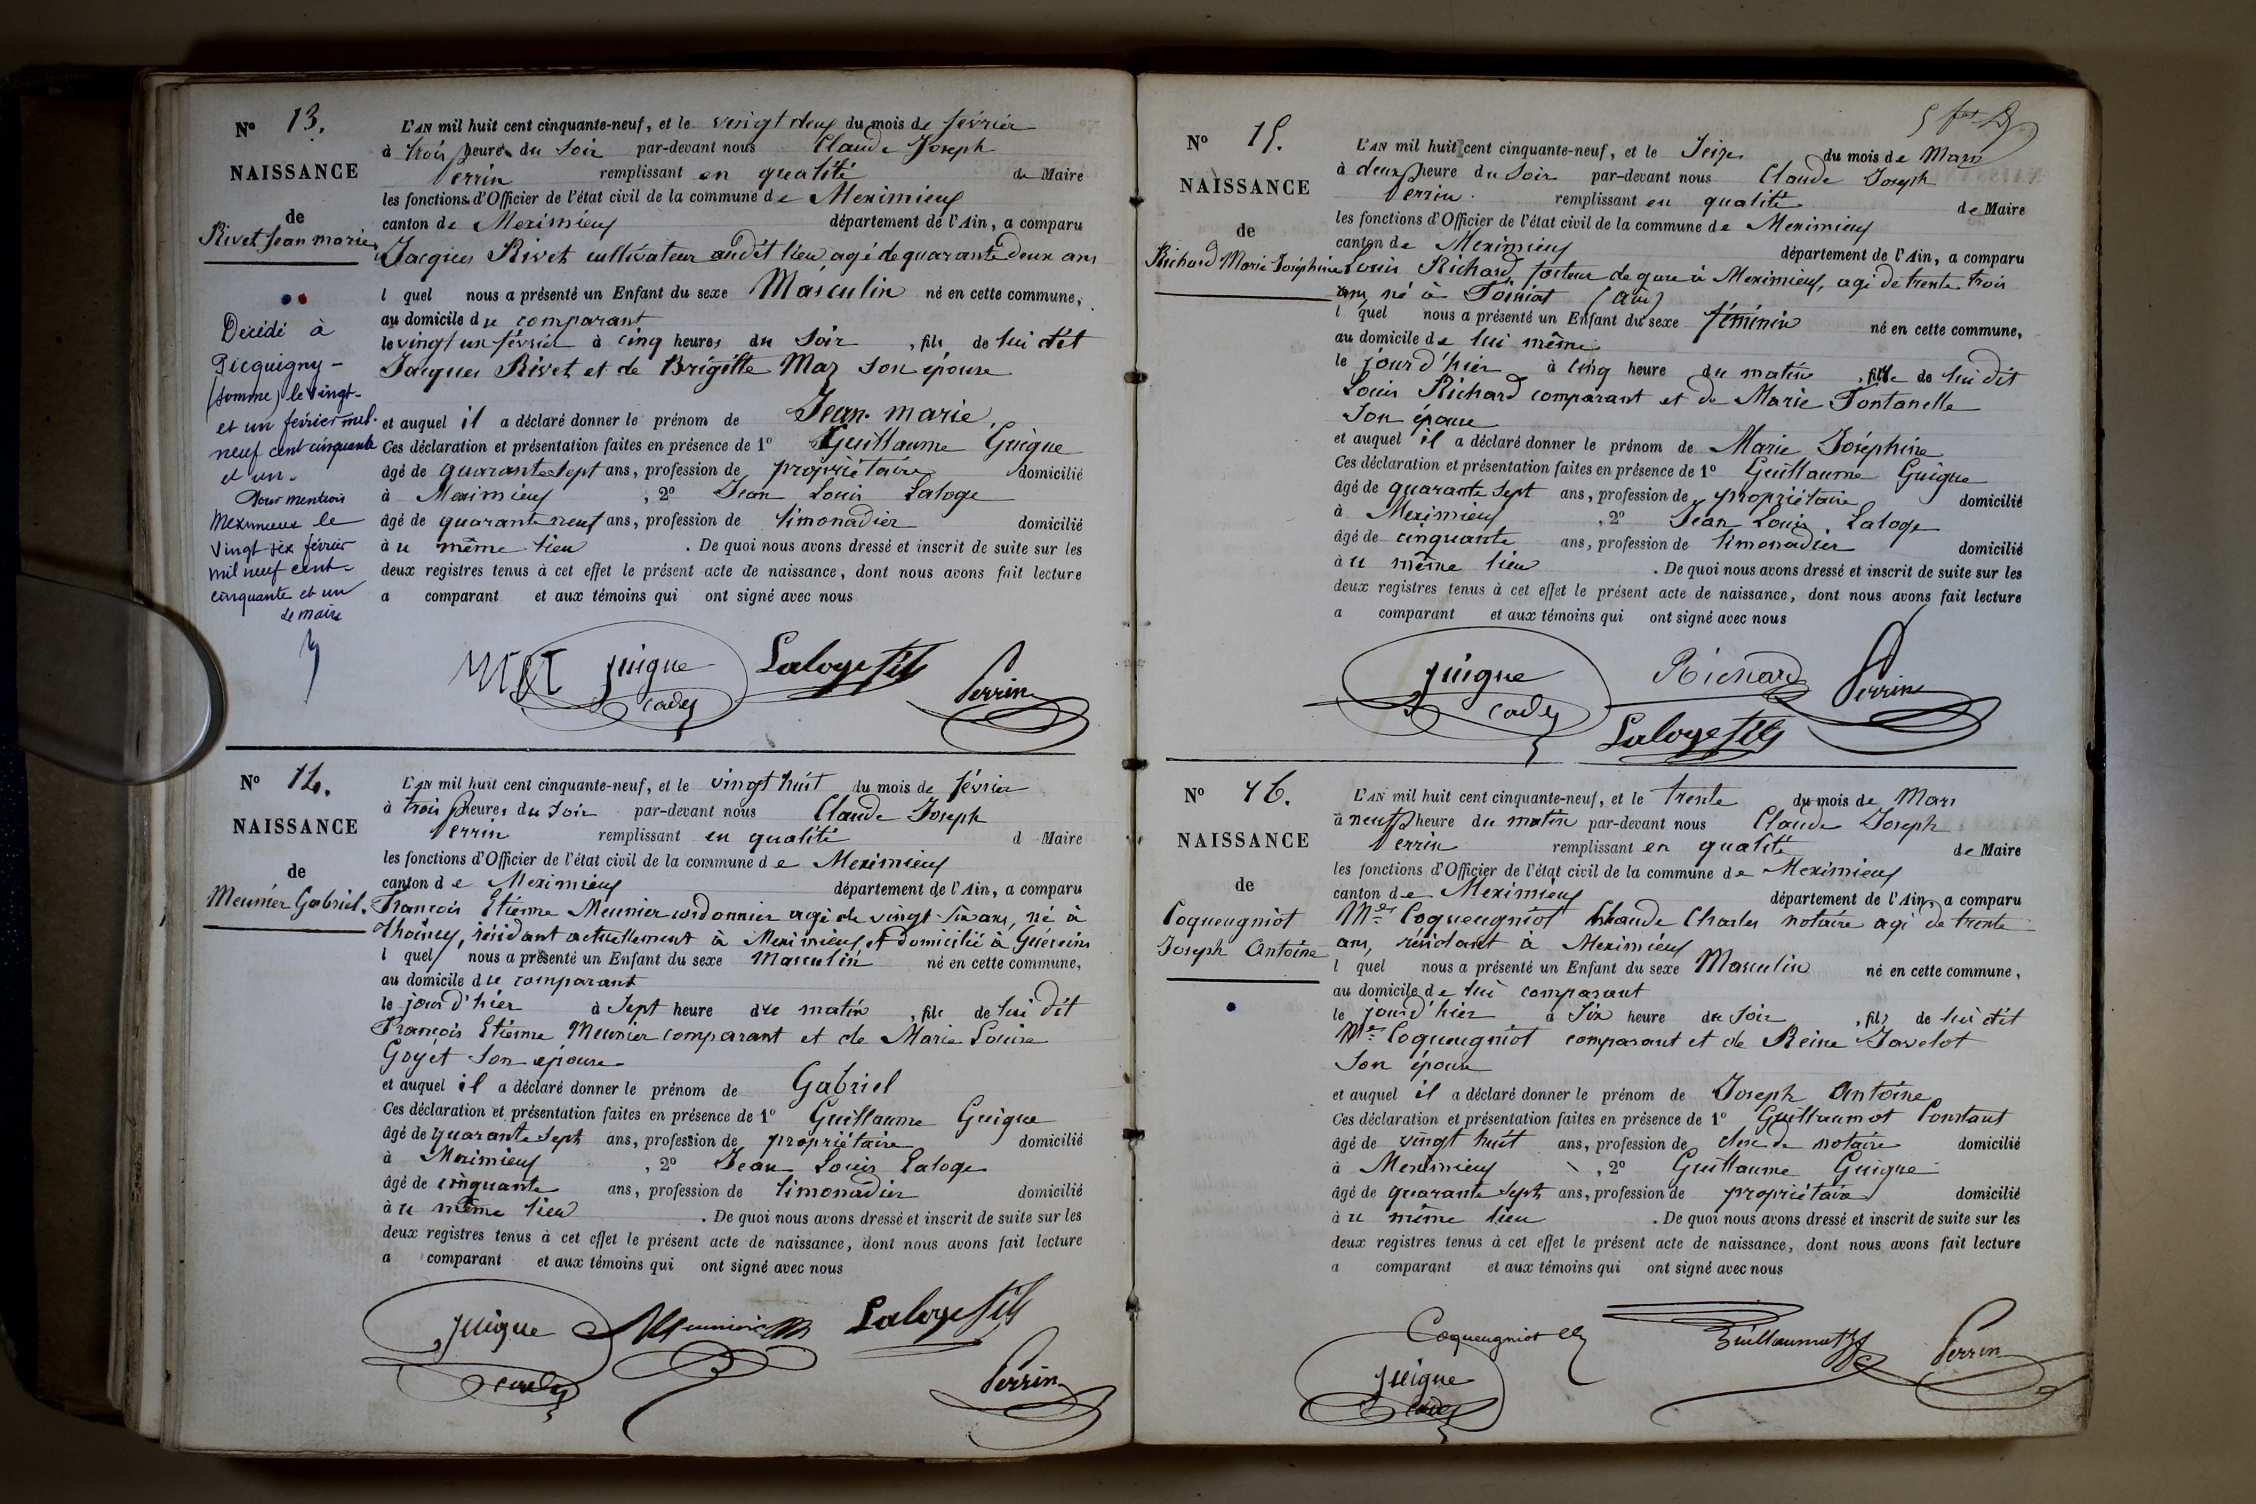 N° 13.
NAISSANCE
de
Rivet Jean marie
Décédé à
Picquigny -
(Somme) le vingt-
et un février mil-
neuf cent cinquante
et un.
Pour mention
Meximieux le
vingt six février
mil neuf cent-
cinquante et un
Le maire
L'AN mil huit cent cinquante-neuf, et le vingt deux du mois de février
à trois heures du soir par-devant nous Claude Joseph
Perrin remplissant en qualité de Maire
les fonctions d'Officier de l'état civil de la commune de Meximieux
canton de Meximieux département de l'Ain, a comparu
Jacques Rivet cultivateur audit lieu agé de quarante deux ans
l quel nous a présenté un Enfant du sexe Masculin né en cette commune,
au domicile du comparant
le vingt un février à cinq heures du soir, fils de lui dit
Jacques Rivet et de Brigitte Maz son épouse
et auquel il a déclaré donner le prénom de Jean marie
Ces déclaration et présentation faites en présence de 1° Guillaume Guigue
âgé de quarante sept ans, profession de propriétaire domicilié
à Meximieux, 2° Jean Louis Laloge
âgé de quarante neuf ans, profession de limonadier domicilié
à u même lieu. De quoi nous avons dressé et inscrit de suite sur les
deux registres tenus à cet effet le présent acte de naissance, dont nous avons fait lecture
a comparant et aux témoins qui ont signé avec nous
guigue Laloge fils
cadet Perrin
N° 14.
NAISSANCE
de
Meunier Gabriel.
L'AN mil huit cent cinquante-neuf, et le vingt huit du mois de février
à trois heures du soir par-devant nous Claude Joseph
Perrin remplissant en qualité d Maire
les fonctions d'Officier de l'état civil de la commune de Meximieux
canton de Meximieux département de l'Ain, a comparu
François Etienne Meunier cordonnier agé de vingt six ans, né à
Thoissey, résidant actuellement à Meximieux et domicilié à Guéreins
l quel nous a présenté un Enfant du sexe Masculin né en cette commune,
au domicile du comparant
le jour d'hier à sept heure du matin, fils de lui dit
François Etienne Meunier comparant et de Marie Louise
Goyet son épouse
et auquel il a déclaré donner le prénom de Gabriel
Ces déclaration et présentation faites en présence de 1° Guillaume Guigue
âgé de quarante sept ans, profession de propriétaire domicilié
à Meximieux, 2° Jean Louis Laloge
âgé de cinquante ans, profession de limonadier domicilié
à u même lieu. De quoi nous avons dressé et inscrit de suite sur les
deux registres tenus à cet effet le présent acte de naissance, dont nous avons fait lecture
a comparant et aux témoins qui ont signé avec nous
guigue Meunier Laloge fils
cadet Perrin
N° 15.
NAISSANCE
de
Richard Marie Joséphine
L'AN mil huit cent cinquante-neuf, et le seize du mois de Mars
à deux heure du soir par-devant nous Claude Joseph
Perrin remplissant en qualité de Maire
les fonctions d'Officier de l'état civil de la commune de Meximieux
canton de Meximieux département de l'Ain, a comparu
Louis Richard, facteur de gare à Meximieux, agé de trente trois
ans, né à (Ain)
l quel nous a présenté un Enfant du sexe féminin né en cette commune,
au domicile de lui même
le jour d'hier à cinq heure du matin, fille de lui dit
Louis Richard comparant et de Marie Fontanelle
son épouse
et auquel il a déclaré donner le prénom de Marie Joséphine
Ces déclaration et présentation faites en présence de 1° Guillaume Guigue
âgé de quarante sept ans, profession de propriétaire domicilié
à Meximieux, 2° Jean Louis Laloge
âgé de cinquante ans, profession de limonadier domicilié
à u même lieu. De quoi nous avons dressé et inscrit de suite sur les
deux registres tenus à cet effet le présent acte de naissance, dont nous avons fait lecture
a comparant et aux témoins qui ont signé avec nous
guigue Richard Perrin
cadet Laloge fils
N° 16.
NAISSANCE
de
Coqueugniot
Joseph Antoine
L'AN mil huit cent cinquante-neuf, et le trente du mois de Mars
à neuf heure du matin par-devant nous Claude Joseph
Perrin remplissant en qualité de Maire
les fonctions d'Officier de l'état civil de la commune de Meximieux
canton de Meximieux département de l'Ain, a comparu
Me Coqueugniot Claude Charles notaire agé de trente
ans, résidant à Meximieux
l quel nous a présenté un Enfant du sexe Masculin né en cette commune,
au domicile de lui comparant
le jour d'hier à six heure du soir, fils de lui dit
Me Coqueugniot comparant et de Reine Javelot
son épouse
et auquel il a déclaré donner le prénom de Joseph Antoine
Ces déclaration et présentation faites en présence de 1° Guillaumot Constant
âgé de vingt huit ans, profession de clerc de notaire domicilié
à Meximieux, 2° Guillaume Guigue
âgé de quarante sept ans, profession de propriétaire domicilié
à u même lieu. De quoi nous avons dressé et inscrit de suite sur les
deux registres tenus à cet effet le présent acte de naissance, dont nous avons fait lecture
a comparant et aux témoins qui ont signé avec nous
Coqueugniot Guillaumot Perrin
guigue
cadet